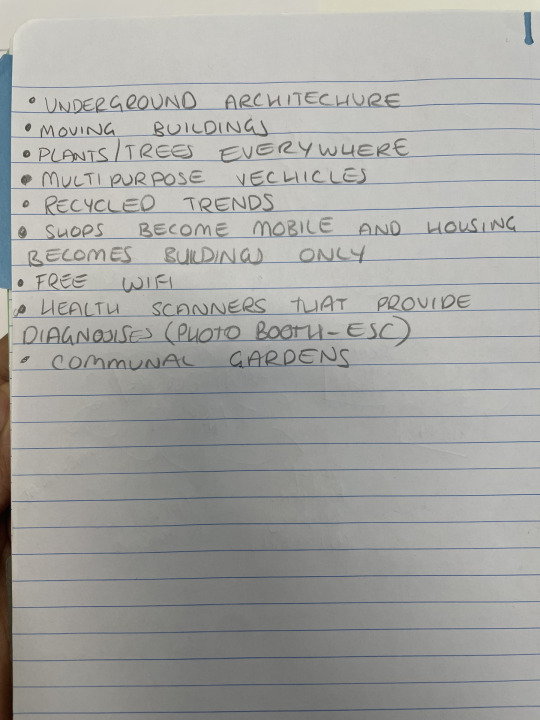 • UNDERGROUND ARCHITECHURE
• MOVING BUILDINGS
• PLANTS/TREES EVERYWHERE
• MULTIPURPOSE VECHICLES
• RECYCLED TRENDS
• SHOPS BECOME MOBILE AND HOUSING
BECOMES BUILDINGS ONLY
• FREE WIFI
• HEALTH SCANNERS THAT PROVIDE
DIAGNOISES (PHOTO BOOTH-ESC)
• COMMUNAL GARDENS